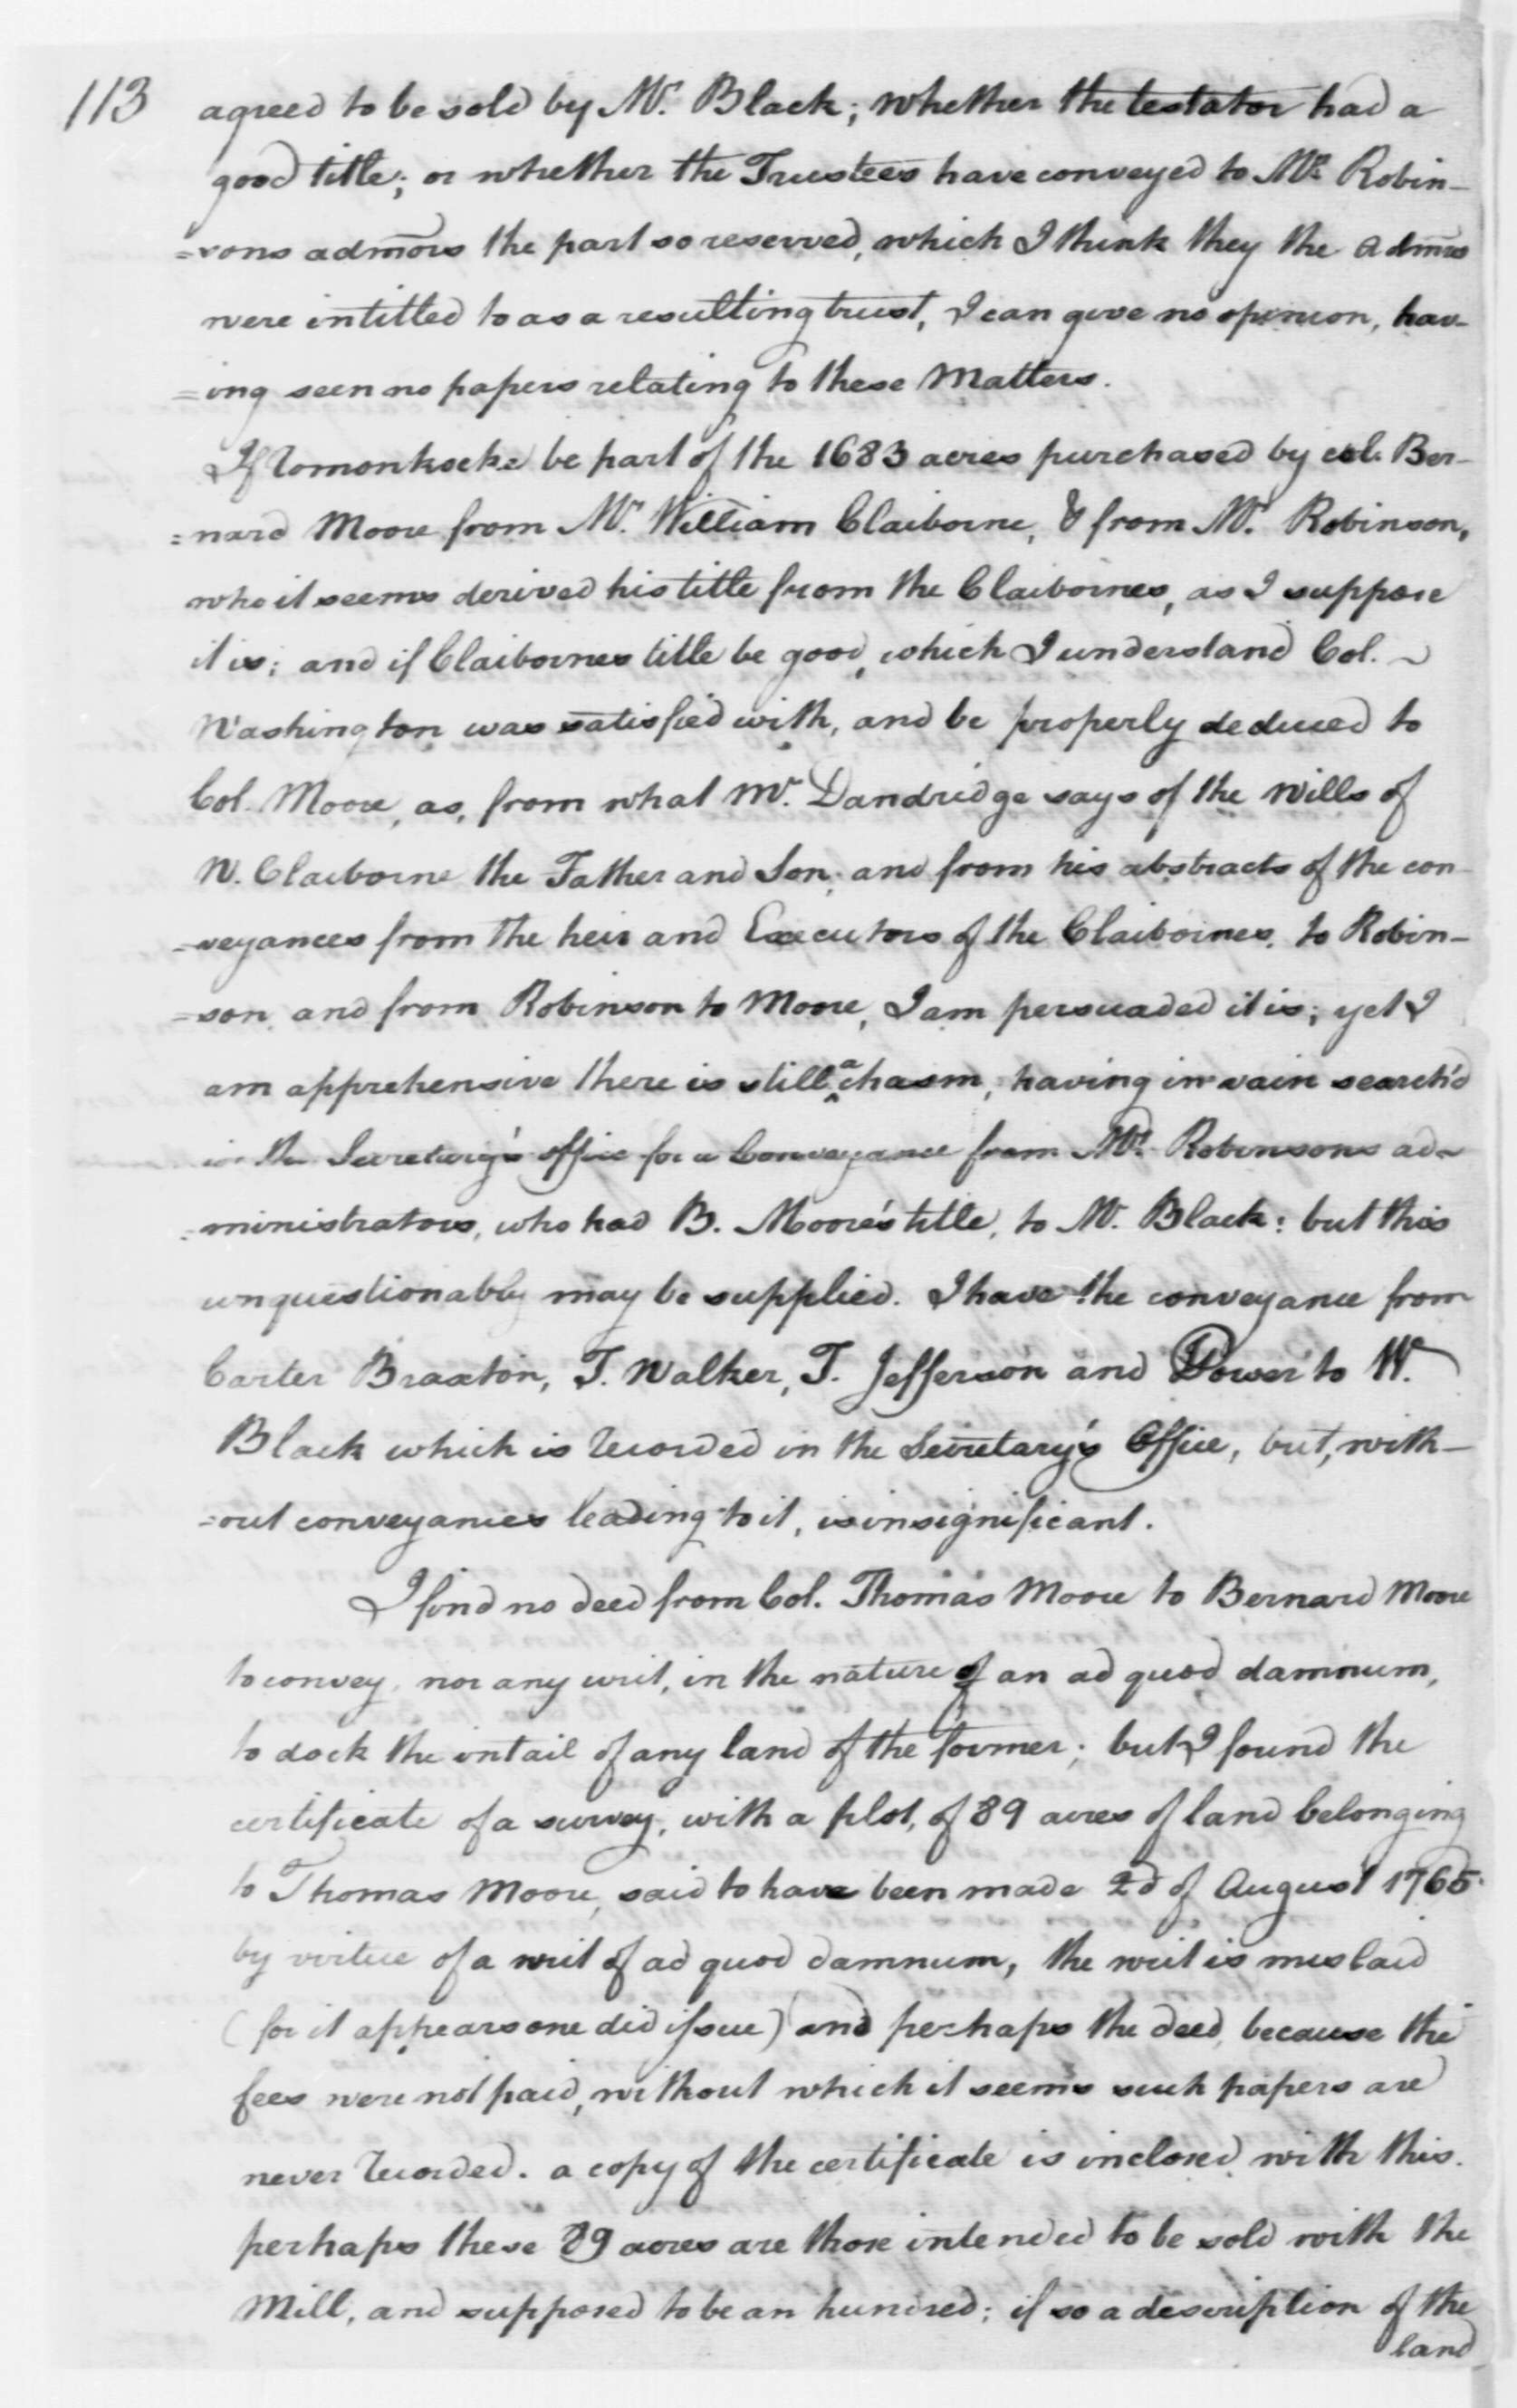 113
agreed to be sold by Mr. Black; whether the testator had a
good title; or whether the Trustees have conveyed to Mr. Robin-
=sons admors the part so reserved, which I think they the Admrs
were intitled to as a resulting trust, I can give no opinion, hav-
=ing seen no papers relating to these Matters.
If Romonkocke be part of the 1683 acres purchased by col. Ber-
=nard Moore from Mr. William Claiborne, & from Mr. Robinson,
who it seems derived his title from the Claibornes, as I suppose
it is; and if Claibornes title be good, which I understand Col.
Washington was satisfied with, and be properly deduced to
Col. Moore, as, from what Mr. Dandridge says of the Wills of
W. Claiborne the Father and Son, and from his abstracts of the con-
=veyances from the heir and Executors of the Claibornes, to Robin-
=son, and from Robinson to Moore, I am persuaded it is; yet I
am apprehensive there is still a chasm, having in vain search'd
in the Secretary's office for a Conveyance from Mr. Robinsons ad-
=ministrators, who had B. Moore's title, to Mr. Black: but this
unquestionably may be supplied. I have the conveyance from
Carter Braxton, T. Walker, T. Jefferson and Power to W.
Black which is recorded in the Secretary's Office, but, with-
=out conveyances leading to it, is insignificant.
I find no deed from Col. Thomas Moore to Bernard Moore
to convey, nor any writ, in the nature of an ad quod damnum,
to dock the intail of any land of the former; but I found the
certificate of a survey, with a plot, of 89 acres of land belonging
to Thomas Moore, said to have been made 2d of August 1765
by virtue of a writ of ad quod damnum, the writ is mislaid
(for it appears one did issue) and perhaps the deed, because the
fees were not paid, without which it seems such papers are
never recorded. a copy of the certificate is inclosed with this.
perhaps these 89 acres are those intended to be sold with the
Mill, and supposed to be an hundred; if so a description of the
land